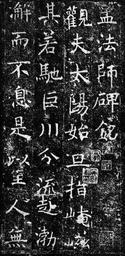 孟法師碑銘
觀夫太陽始旦指崦嵫
其若馳巨川分渤
澥而不息是以至人無